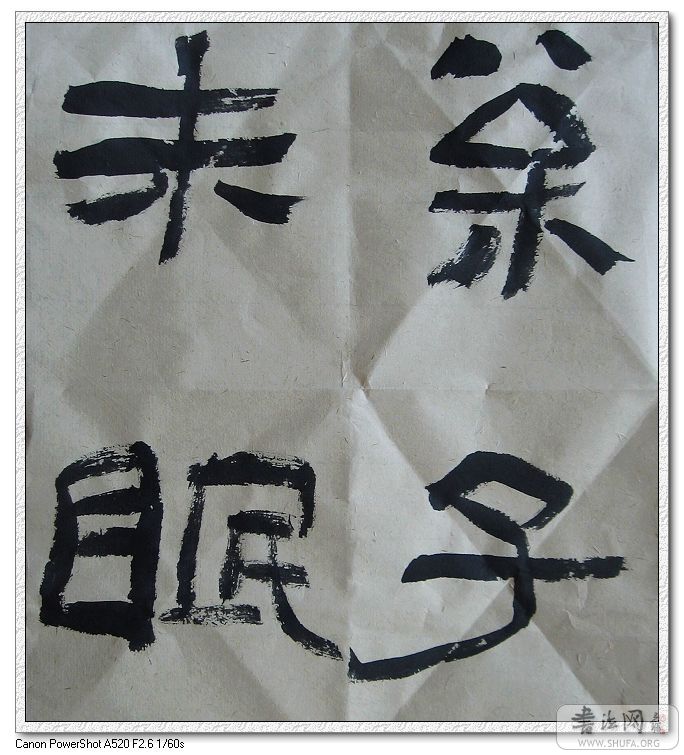 子
未眠
书法网
WWW.SHUFA.ORG
Canon PowerShot A520 F2.6 1/60s